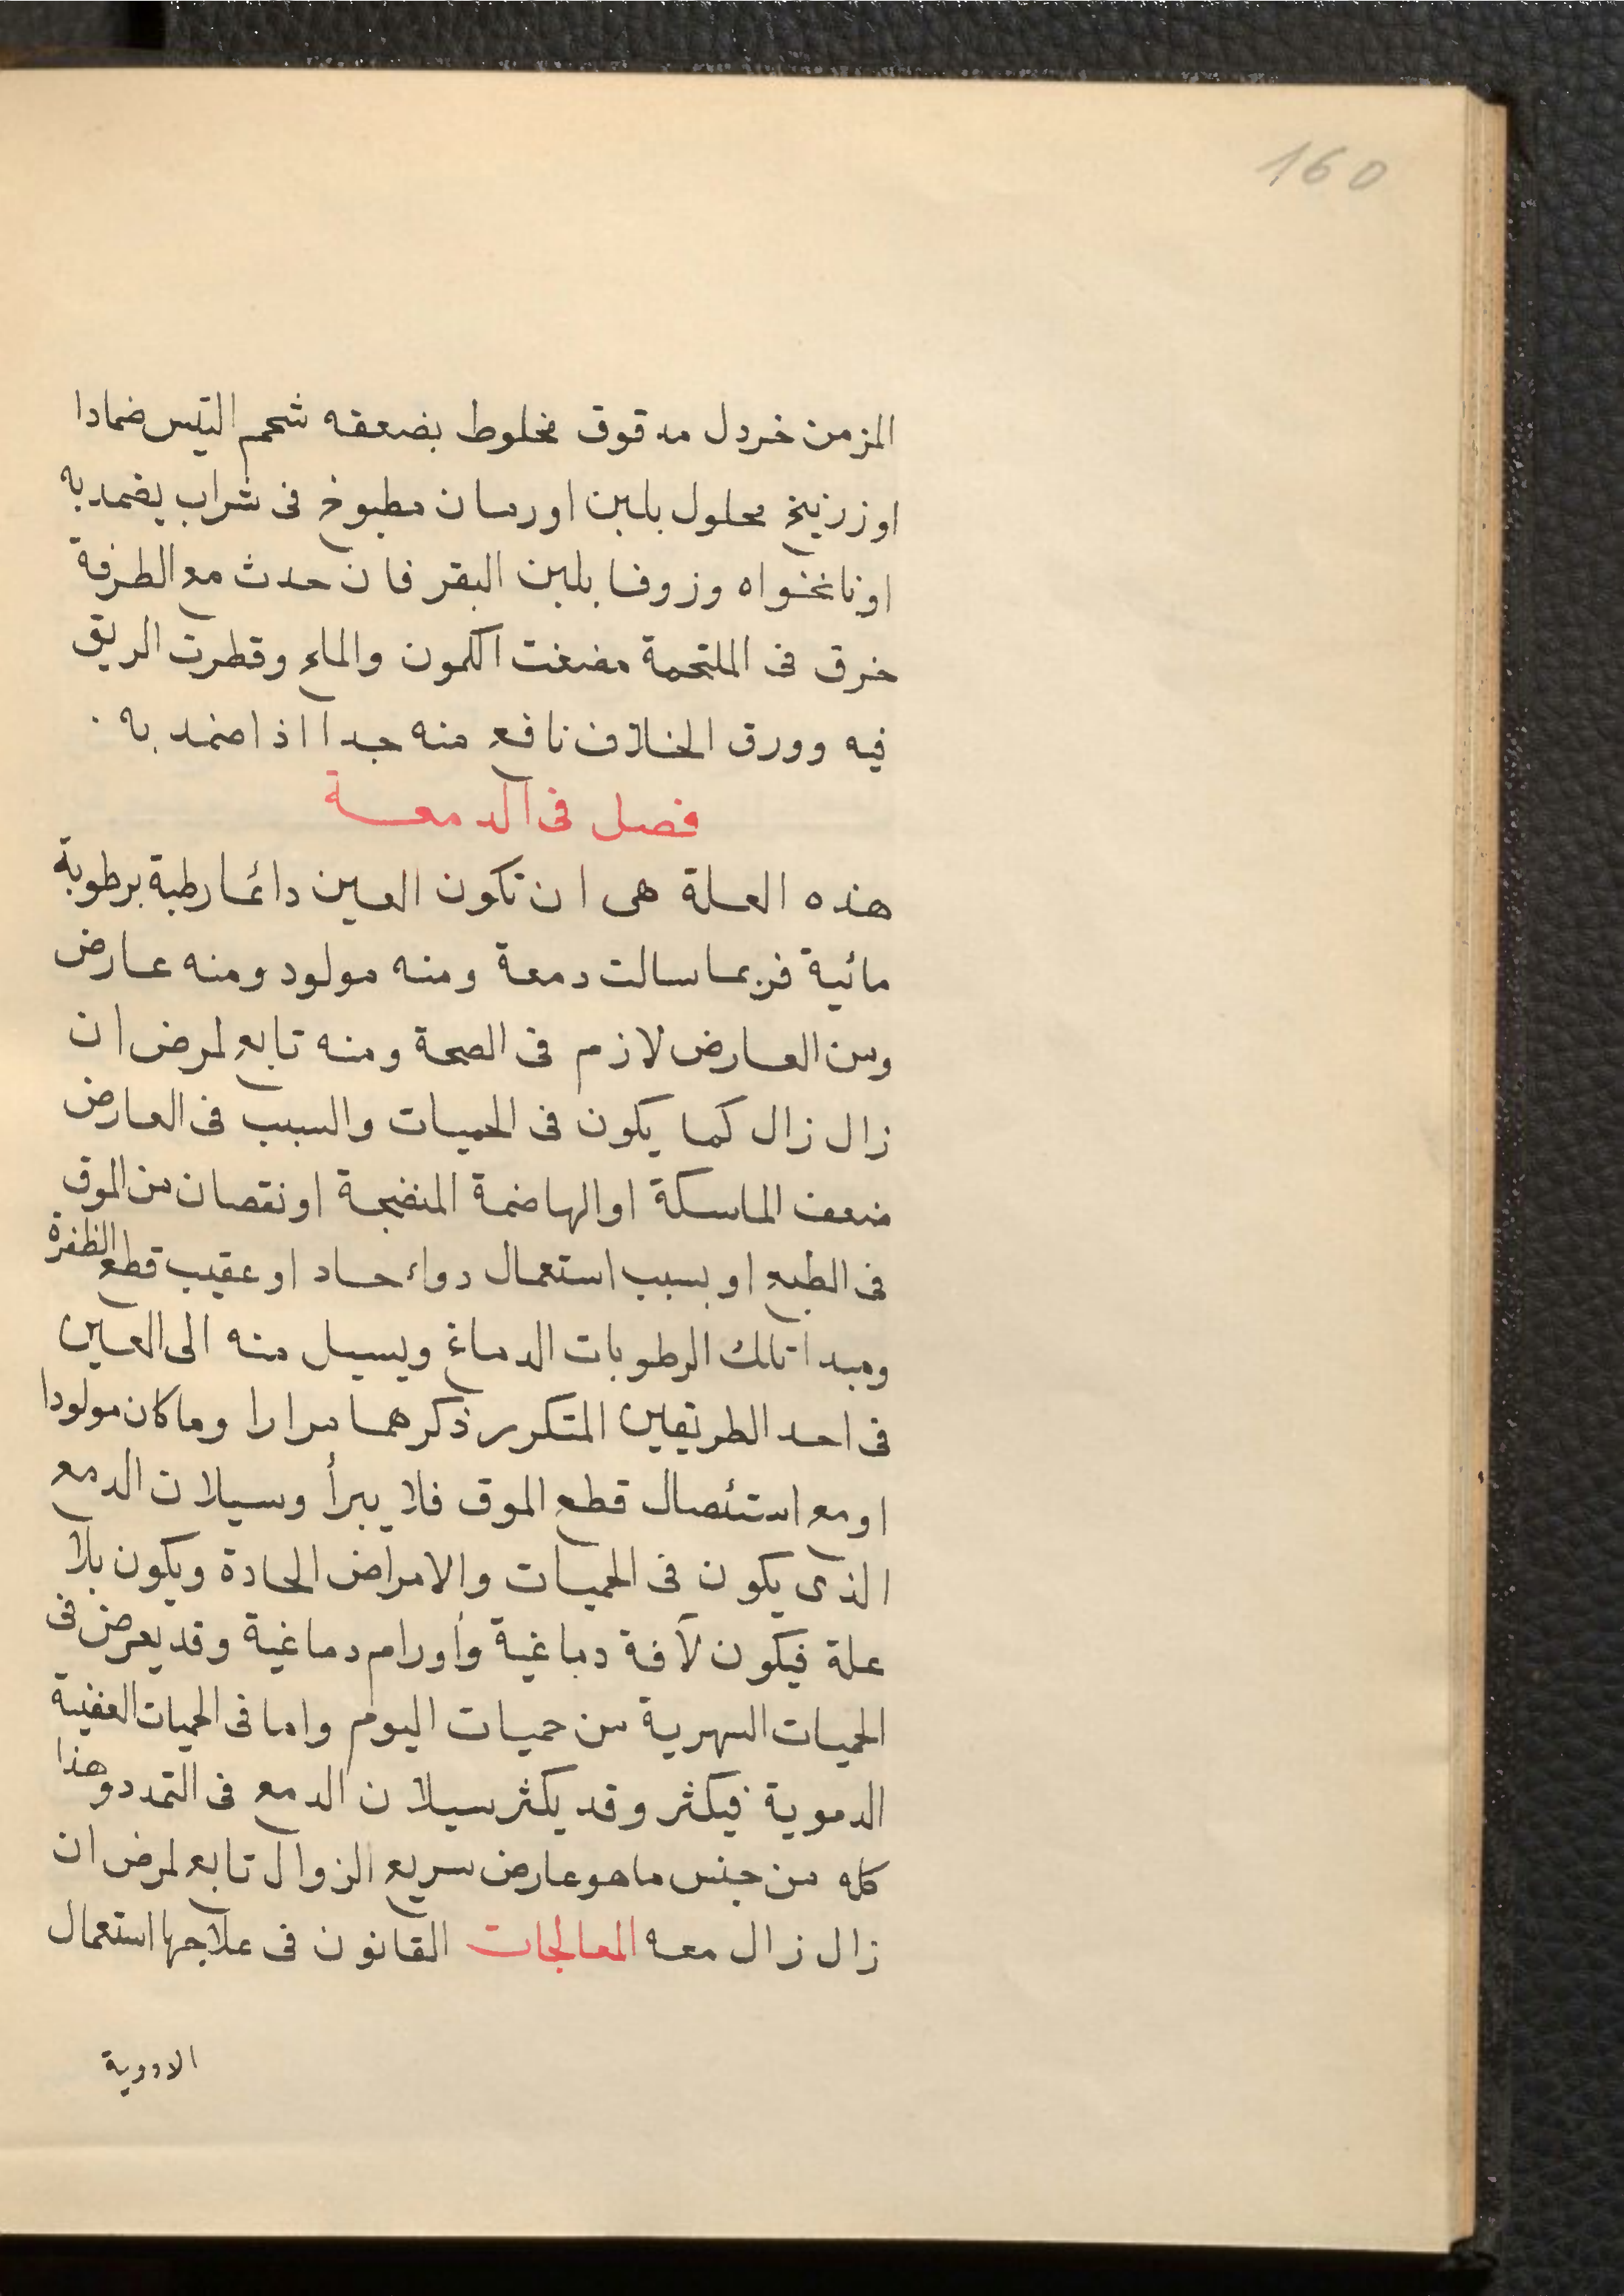 160
المزمن خردل مدقوق مخلوط بضعفه شحم التيس ضمادا
او زرنيخ محلول بلبن اورمان مطبوخ فى شراب يضمد به
او نانخواه وزوفا بلبن البقر فان حدث مع الطرفة
خرق فى الملتحمة مضغت الكمون والملح وقطرت الريق
فيه وورق الخلاف نافع منه جدا اذا ضمد به .
فصل فى الدمعة
هذه العلة هى ان تكون العين دائما رطبة برطوبة
مائية فربما سالت دمعة ومنه مولود ومنه عارض
ومن العارض لازم فى الصحة ومنه تابع لمرض ان
زال زال كما يكون فى الحميات والسبب فى العارض
ضعف الماسكة او الهاضمة المنضجة او نقصان من الموق
فى الطبع او بسبب استعمال دواء حاد او عقيب قطع الظفرة
ومبدا تلك الرطوبات الدماغ ويسيل منه الى العين
فى احد الطريقين المتكرر ذكرهما مرارا وما كان مولودا
او مع استئصال قطع الموق فلا يبرأ وسيلان الدمع
الذى يكون فى الحميات والامراض الحادة ويكون بلا
علة فيكون لآفة دماغية وأورام دماغية وقد يعرض فى
الحميات السهرية من حميات اليوم واما فى الحميات العفنية
الدموية فيكثر وقد يكثر سيلان الدمع فى التمدد وهذا
كله من جنس ما هو عارض سريع الزوال تابع لمرض ان
زال زال معه المعالجات القانون فى علاجها استعمال
الادوية